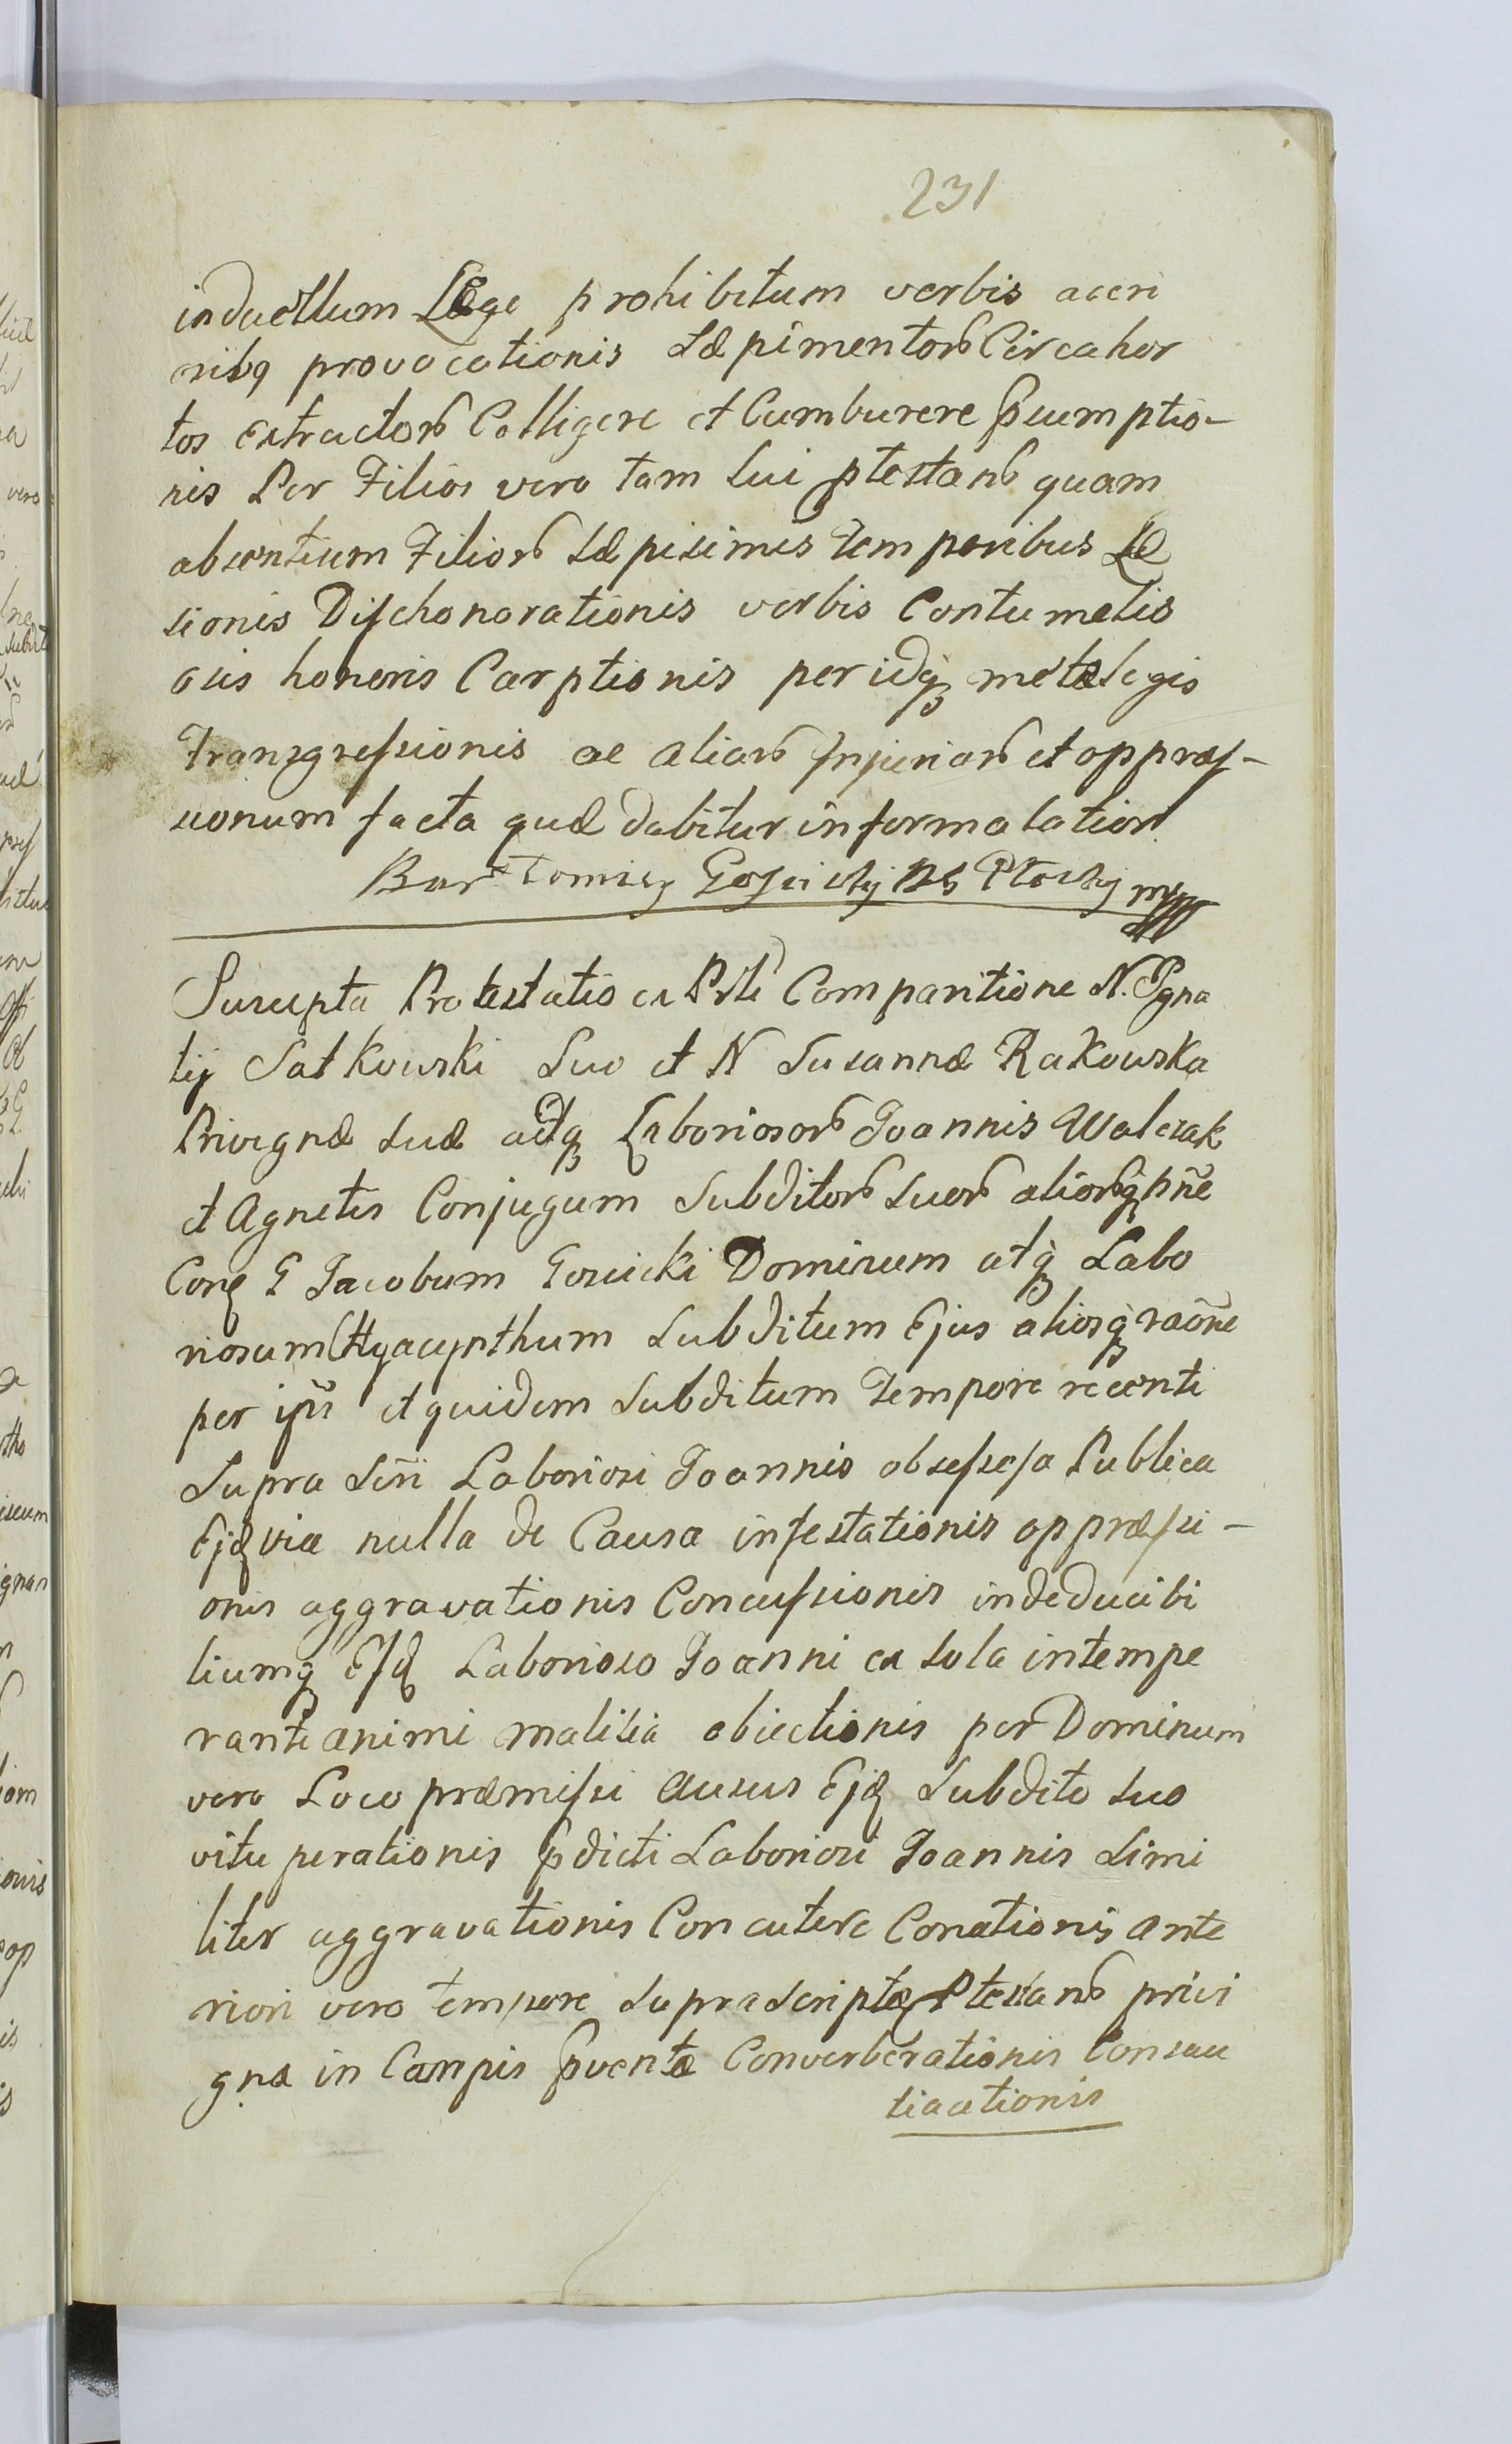 231
induellum Lege prohibitum verbis aceri
nibq provocationis Sæpimentorb Circa hor
tos extractorb Colligere et Cumburere Psumptio-
nis Per Filios vero tam sui Ptestanb quam
absentium Filiorb Sæpisimis Temporibus Læ
sionis Dischonorationis verbis Contumetio
sis honoris Carptionis per idq metæ Legis
Transgressionis ac aliarb Injuriarb et oppræs-
sionum facta quæ dabitur informalation
Bart Tomiey Goscickij Ptockij mpp
Suscepta Protestatio ex Prti Comparitione N. Igna
tij Satkowski Suo et N Susannæ Rakowska
Privignæ suæ adq Laboriosorb Joannis Walczak
et Agnetis Conjugum Subditorb suorb aliorbq pñe
Conq G Jacobum Goscicki Dominum atq Labo
riosum Hyacynthum Subditum Ejus aliosq raõne
per ipũ et quidem Subditum Tempore recenti
Supra Scri Laboriosi Joannis obsessesa Publica
Ejq via nulla de Causa infestationis oppræssi-
onis aggravationis Concussionis indeducibi
liumq Ejq Laborioso Joanni ex sola intempe
rante animi malitia obiectionis per Dominum
vero Loco præmissi ausus Ejq Subdito suo
vituperationis Pdicti Laboriosi Joannis Simi
liter aggravationis Concutere Conationis ante
riori vero tempore Suprascriptæ Ptestanb privi
gna in Campis Pventæ Converberationis Consau
tiaationis